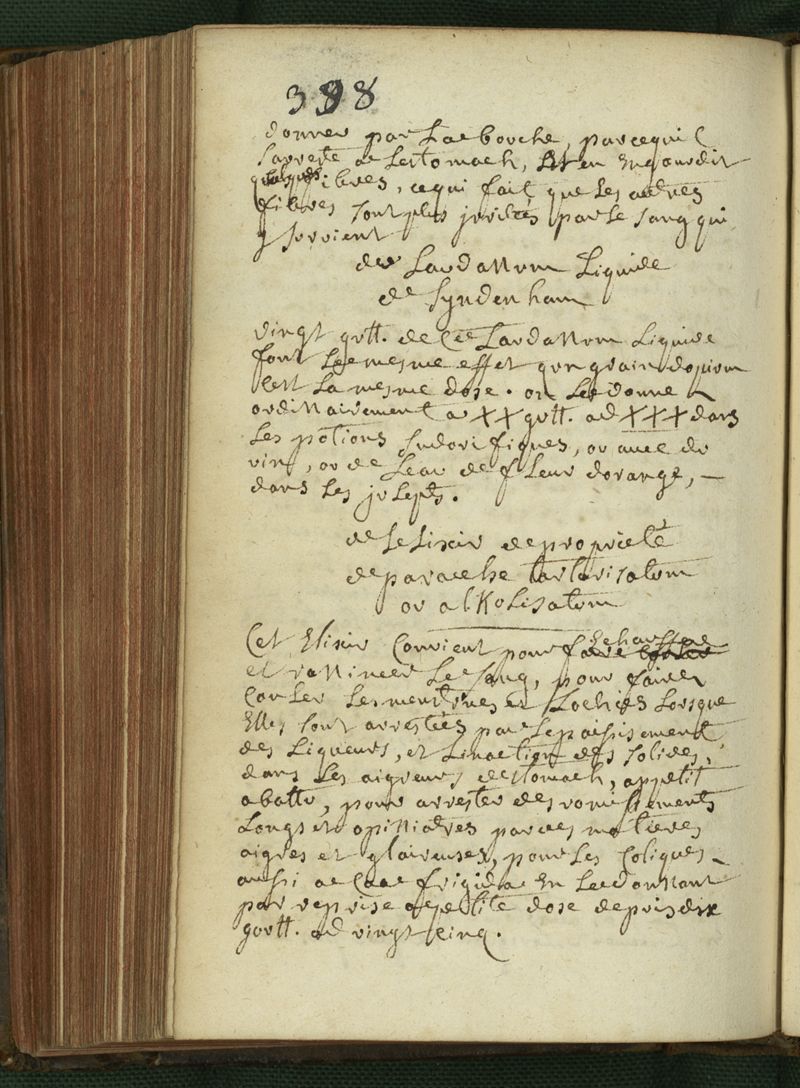 398
donner par La bouche, parcequil
Sarreste a Lestomach, Et en Engourdit
quelques fibres, cequi fait que Les autres
fibres sont plus jrritées par Le sang qui
y survient
du Laudanum Liquide
de Syndenham
vingt gutt. de Ce Laudanum Liquide
font Le mesme effet qun grain dopium
Cest La mesme dose. on Le donne
ordinairement a XX gutt. ad XXX dans
Les potions sudorifiques, ou avec du
vin, ou de Leau de fleur dorange,
dans Les juleps.
de Lelixir de proprieté
de paracelse tartarisatum
ou alkolisatum
Cet Elixir Convient pour Echauffer
et ranimer Le sang, pour faire
Couler Les menstrues et Lochies Lorsque
Elles sont arrestées par Lepaissisement
des Liqueurs, et Linaction des solides,
dans Les aigreurs destomach, appetit
abattu, pour arrester des vomissements
Longs et opiniatres par des matieres
aigres et glaireuses, pour Les Coliques
aussi a Causa frigida En Le donnant
par reprise a petite dose depuis dix
goutt. ad vingt cinq.